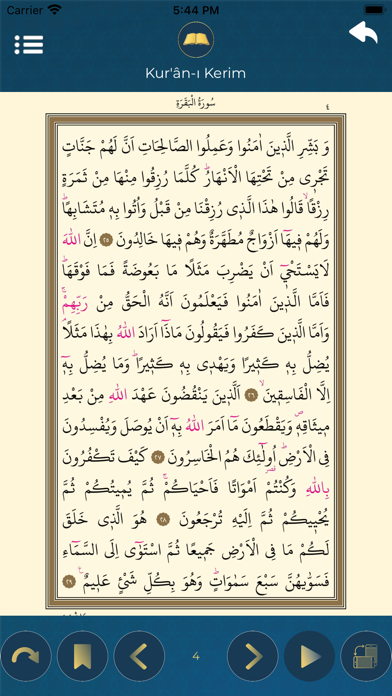 Carrier 5:44 PM
Kur'ân-ı Kerim
سُورَةُ الْبَقَرَةِ ٤
وَ بَشِّرِ الَّذ۪ينَ اٰمَنُوا وَعَمِلُوا الصَّالِحَاتِ اَنَّ لَهُمْ جَنَّاتٍ
تَجْر۪ي مِنْ تَحْتِهَا الْاَنْهَارُۜ كُلَّمَا رُزِقُوا مِنْهَا مِنْ ثَمَرَةٍ
رِزْقاًۙ قَالُوا هٰذَا الَّذ۪ي رُزِقْنَا مِنْ قَبْلُ وَاُتُوا بِه۪ مُتَشَابِهاًۜ
وَلَهُمْ ف۪يهَٓا اَزْوَاجٌ مُطَهَّرَةٌ وَهُمْ ف۪يهَا خَالِدُونَ ٢٥ اِنَّ اللّٰهَ
لَايَسْتَحْي۪ٓ اَنْ يَضْرِبَ مَثَلًا مَا بَعُوضَةً فَمَا فَوْقَهَاۜ
فَاَمَّا الَّذ۪ينَ اٰمَنُوا فَيَعْلَمُونَ اَنَّهُ الْحَقُّ مِنْ رَبِّهِمْۚ
وَاَمَّا الَّذ۪ينَ كَفَرُوا فَيَقُولُونَ مَاذَٓا اَرَادَ اللّٰهُ بِهٰذَا مَثَلًاۢ
يُضِلُّ بِه۪ كَث۪يراً وَيَهْد۪ي بِه۪ كَث۪يراًۜ وَمَا يُضِلُّ بِه۪ٓ
اِلَّا الْفَاسِق۪ينَۙ ٢٦ اَلَّذ۪ينَ يَنْقُضُونَ عَهْدَ اللّٰهِ مِنْ بَعْدِ
م۪يثَاقِه۪ۖ وَيَقْطَعُونَ مَٓا اَمَرَ اللّٰهُ بِه۪ٓ اَنْ يُوصَلَ وَيُفْسِدُونَ
فِي الْاَرْضِۜ اُو۬لٰٓئِكَ هُمُ الْخَاسِرُونَ ٢٧ كَيْفَ تَكْفُرُونَ
بِاللّٰهِ وَكُنْتُمْ اَمْوَاتًا فَاَحْيَاكُمْۚ ثُمَّ يُم۪يتُكُمْ ثُمَّ
يُحْي۪يكُمْ ثُمَّ اِلَيْهِ تُرْجَعُونَ ٢٨ هُوَ الَّذ۪ي خَلَقَ
لَكُمْ مَا فِي الْاَرْضِ جَم۪يعًا ثُمَّ اسْتَوٰٓى اِلَى السَّمَٓاءِ
فَسَوّٰيهُنَّ سَبْعَ سَمٰوَاتٍۜ وَهُوَ بِكُلِّ شَيْءٍ عَل۪يمٌ۟ ٢٩
4